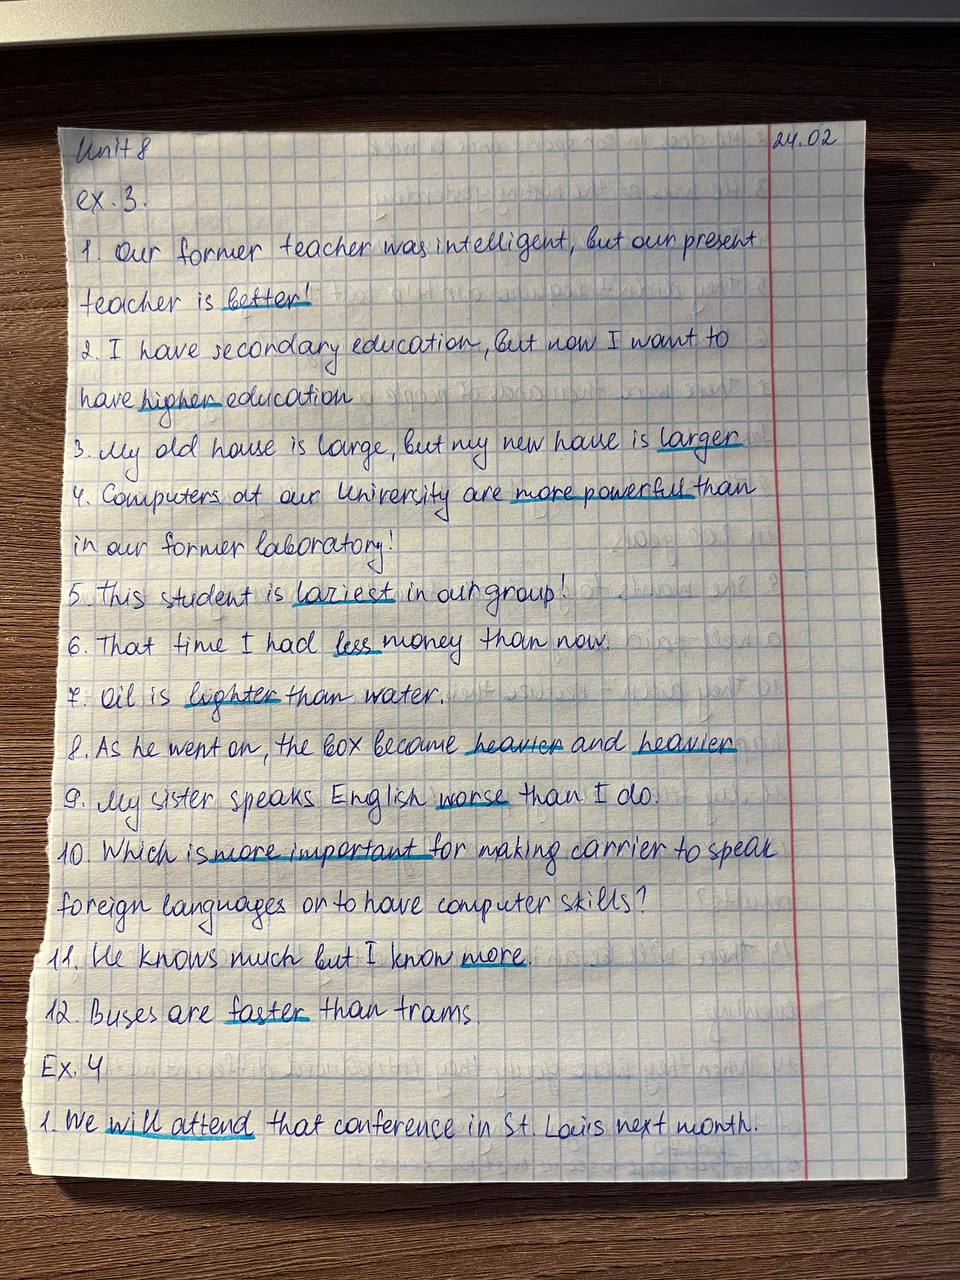 Unit 8
24.02
ex. 3.
1. Our former teacher was intelligent, but our present
teacher is better!
2. I have secondary education, but now I want to
have higher education
3. My old house is large, but my new house is larger
4. Computers at our University are more powerful than
in our former laboratory!
5. This student is laziest in our group!
6. That time I had less money than now.
7. Oil is lighter than water.
8. As he went on, the box became heavier and heavier
9. My sister speaks English worse than I do.
10. Which is more important for making carrier to speak
foreign languages or to have computer skills?
11. He knows much but I know more.
12. Buses are faster than trams.
Ex. 4
1. We will attend that conference in St. Louis next month.